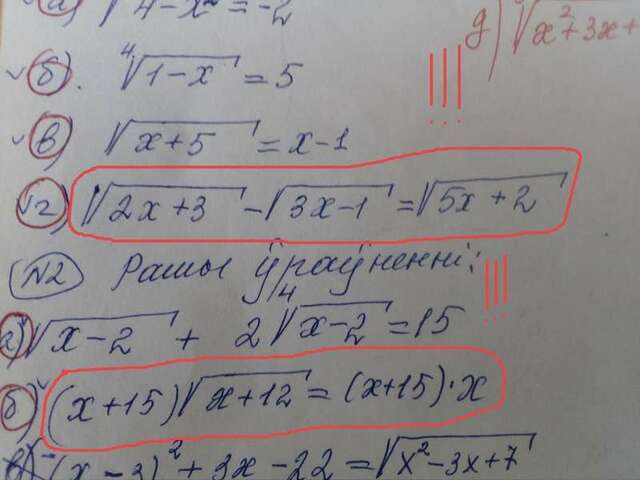 а) √4-x² = -2
д) √x²+3x+
б). ⁴√1-x = 5
!!!
в) √x+5 = x-1
г) √2x+3 - √3x-1 = √5x+2
N2 Рашы ўраўненні:
!!!
а) √x-2 + 2⁴√x-2 = 15
б) (x+15)√x+12 = (x+15)·x
в) (x-3)²+3x-22 = √x²-3x+7